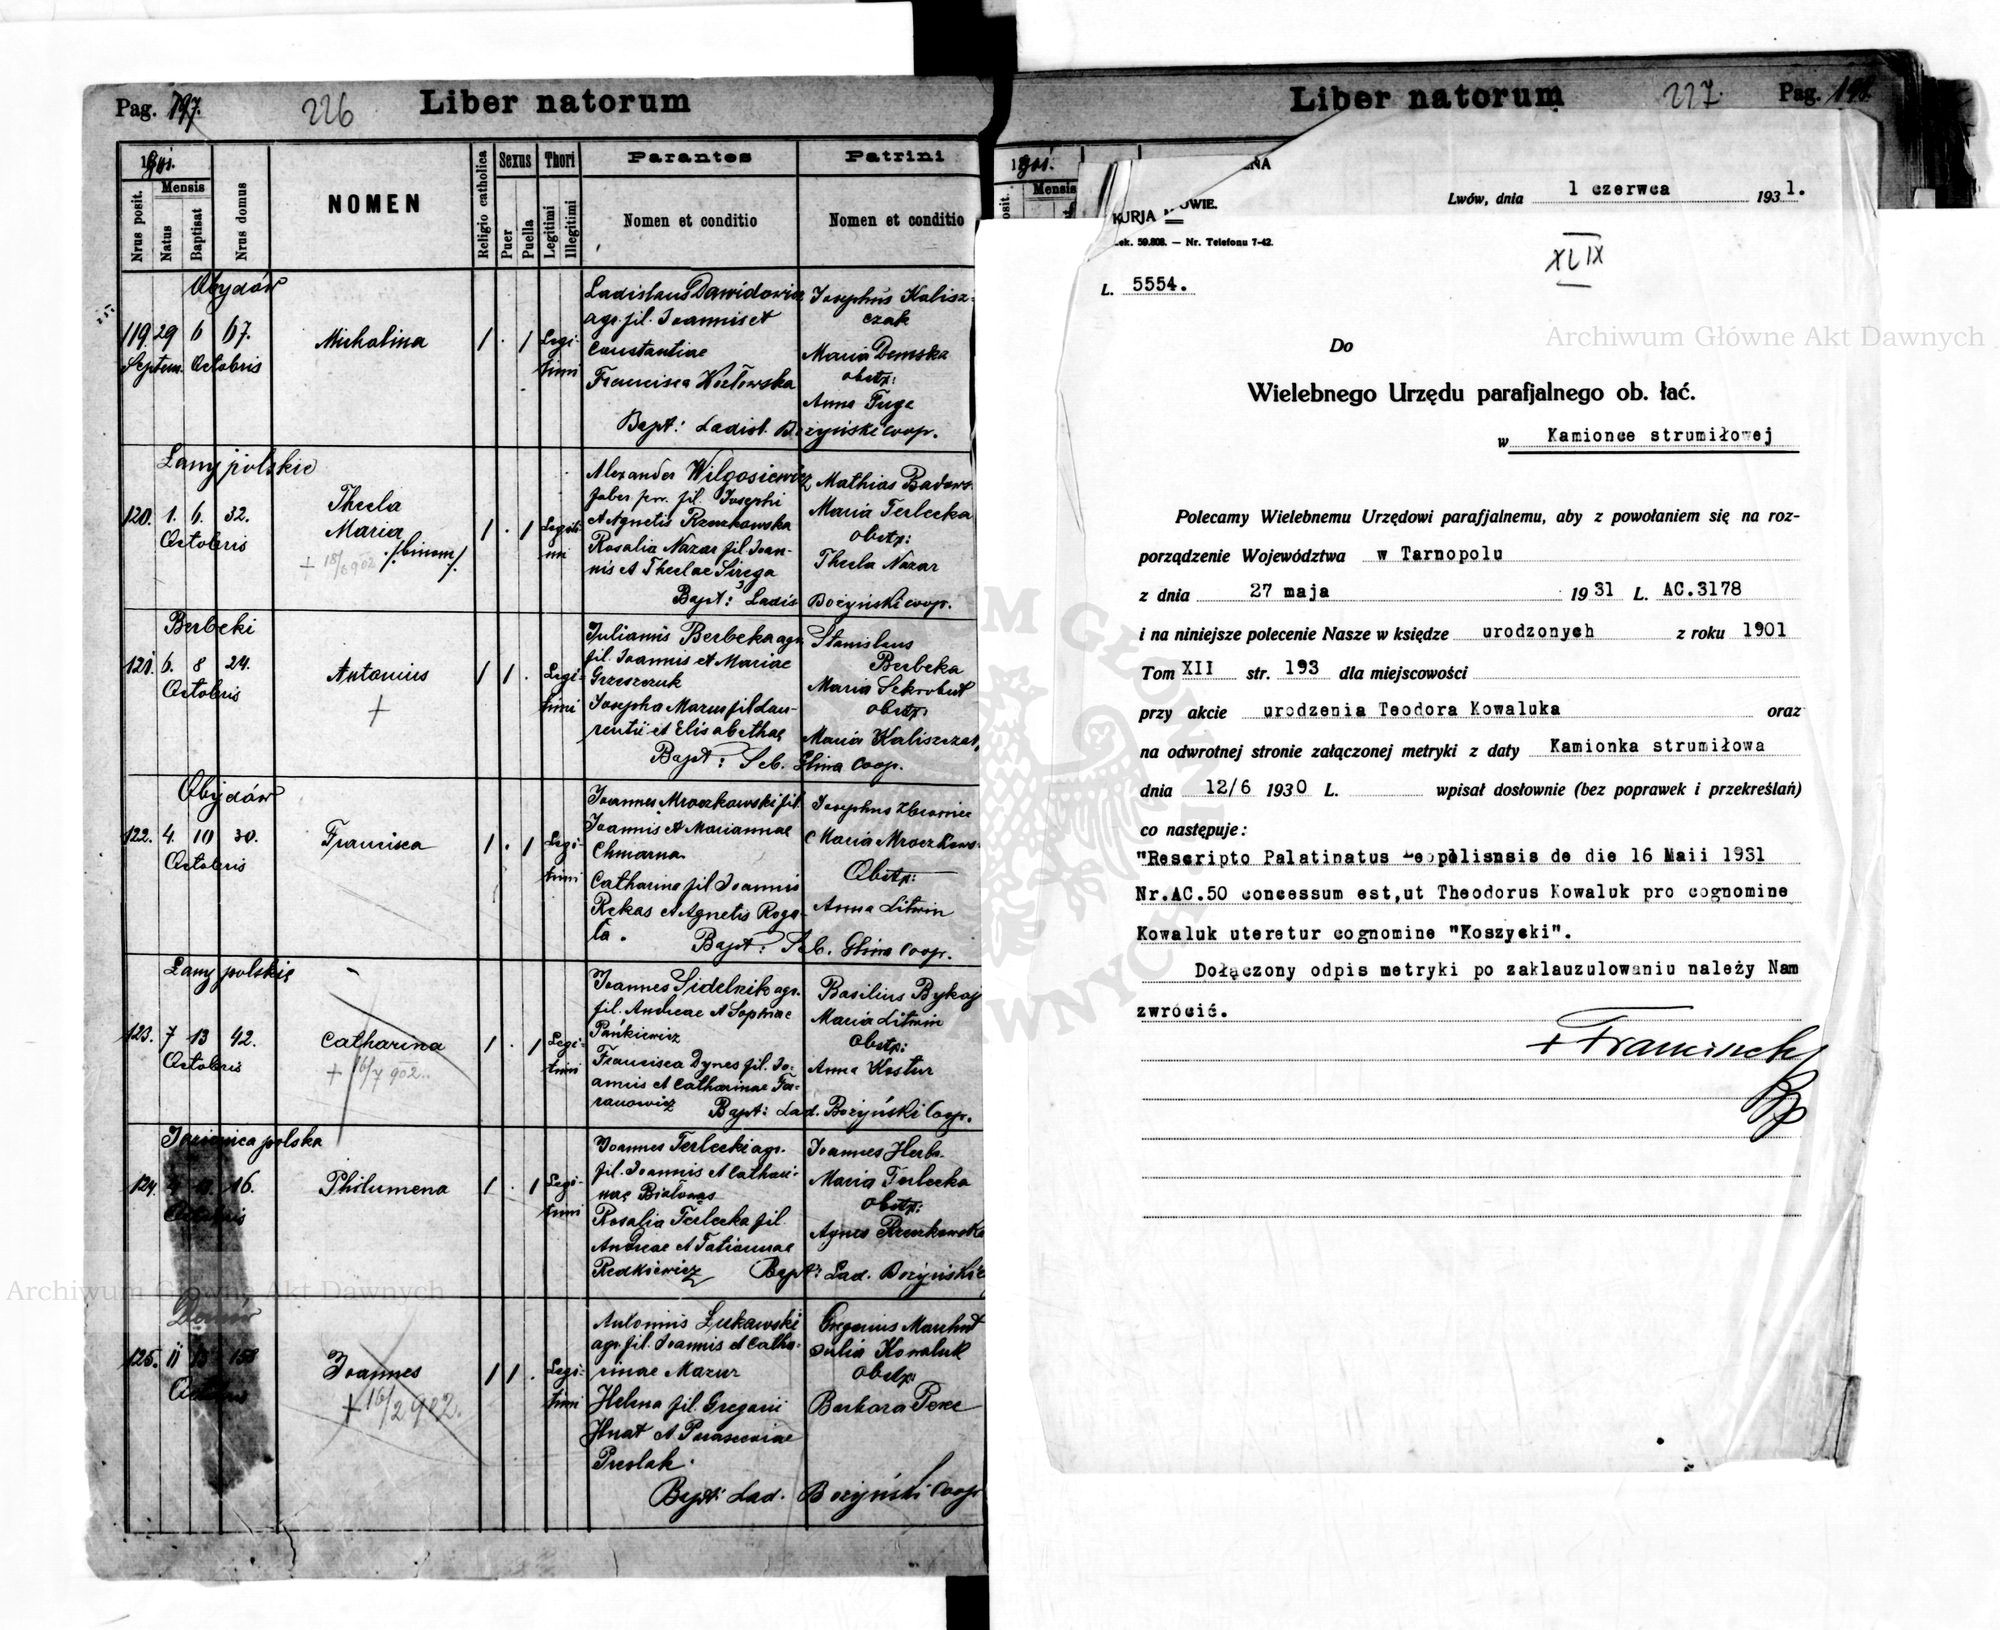 Pag. 197.
226
Liber natorum
1901.
Nrus posit.
Mensis
Natus
Baptisat
Nrus domus
NOMEN
Religio catholica
Sexus
Puer
Puella
Thori
Legitimi
Illegitimi
Parantes
Nomen et conditio
Patrini
Nomen et conditio
Obydów
119. 29 6 67.
Septem. Octobris
Michalina
1 . 1
Legi-
timi
Ladislaus Dawidowicz
agr. fil. Joannis et
Constantiae
Francisca Kozłowska
Josephus Kalisz-
czak
Maria Demska
obstp:
Anna Fuga
Bapt: Ladisl. Bożyński coop.
Łany polskie
120. 1. 6. 32.
Octobris
Thecla
Maria
/:binom:/
+ 18/6 902
1 . 1
Legiti-
mi
Alexander Wilgosiewicz
faber fil. Josephi
et Agnetis Rzeczkowska
Rosalia Nazar fil. Joan-
nis et Theclae Sirega
Mathias Badows-
Maria Terlecka
obstp:
Thecla Nazar
Bapt: Ladis Bożyński coop.
Berbeki
121. 6. 8 24.
Octobris
Antonius
+
1 1 .
Legi-
timi
Julianus Berbeka agr.
fil. Joannis et Mariae
Grzeszczuk
Josepha Mazur fil. Lau-
rentii et Elisabethae
Stanislaus
Berbeka
Maria Sekrobut
obstp.
Maria Kaliszczak
Bapt: Seb. Glina coop.
Obydów
122. 4. 10 30.
Octobris
Francisca
1 . 1
Legi-
timi
Joannes Mroczkowski fil.
Joannis et Mariannae
Chmarna
Catharina fil. Joannis
Rękas et Agnetis Roga-
la.
Josephus
Maria Mroczkows-
Obstp:
Anna Litwin
Bapt: Seb. Glina Coop.
Łany polskie
123. 7 13 42.
Octobris
Catharina
+ 16/7 902.
1 . 1
Legi-
timi
Joannes Sidelnik agr.
fil. Andreae et Sophiae
Pańkiewicz
Francisca Dynes fil. Jo-
annis et Catharinae Ta-
ranowicz
Basilius Bykaj
Maria Litwin
Obstp:
Anna Kostur
Bapt: Lad. Bożyński Coop.
Jazienica polska
124. 16.
Octobris
Philumena
1 . 1
Legi-
timi
Joannes Terlecki agr.
fil. Joannis et Cathari-
nae Białowąs
Rosalia Terlecka fil.
Andreae et Tatiannae
Redkiewicz
Joannes Herb.
Maria Terlecka
obstp:
Agnes Rzeczkowska
Bapt: Lad. Bożyński
125. 11 13 158
Joannes
+ 16/2 902.
1 1 .
Legi-
timi
Antonius Żukawski
agr. fil. Joannis et Catha-
rinae Mazur
Helena fil. Gregorii
Hnat et Parasceviae
Preslak.
Gregorius Mauhut
Julia Kowaluk
Obstp:
Barbara
Bapt: Lad. Bożyński Coop
Liber natorum
227.
Pag. 198.
1901.
Mensis
posit.
KURJA
OWIE.
59.808. — Nr. Telefonu 7-42.
Lwów, dnia 1 czerwca 1931.
L. 5554.
XLIX
Do
Wielebnego Urzędu parafjalnego ob. łać.
w Kamionce strumiłowej
Polecamy Wielebnemu Urzędowi parafjalnemu, aby z powołaniem się na roz-
porządzenie Województwa w Tarnopolu
z dnia 27 maja 1931 L. AC.3178
i na niniejsze polecenie Nasze w księdze urodzonych z roku 1901
Tom XII str. 193 dla miejscowości
przy akcie urodzenia Teodora Kowaluka oraz
na odwrotnej stronie załączonej metryki z daty Kamionka strumiłowa
dnia 12/6 1930 L. wpisał dosłownie (bez poprawek i przekreślań)
co następuje:
"Rescripto Palatinatus Leopolisnsis de die 16 Maii 1931
Nr.AC.50 concessum est,ut Theodorus Kowaluk pro cognomine
Kowaluk uteretur cognomine "Koszycki".
Dołączony odpis metryki po zaklauzulowaniu należy Nam
zwrócić.
+ Franciszek
Bp
Archiwum Główne Akt Dawnych
Archiwum Główne Akt Dawnych